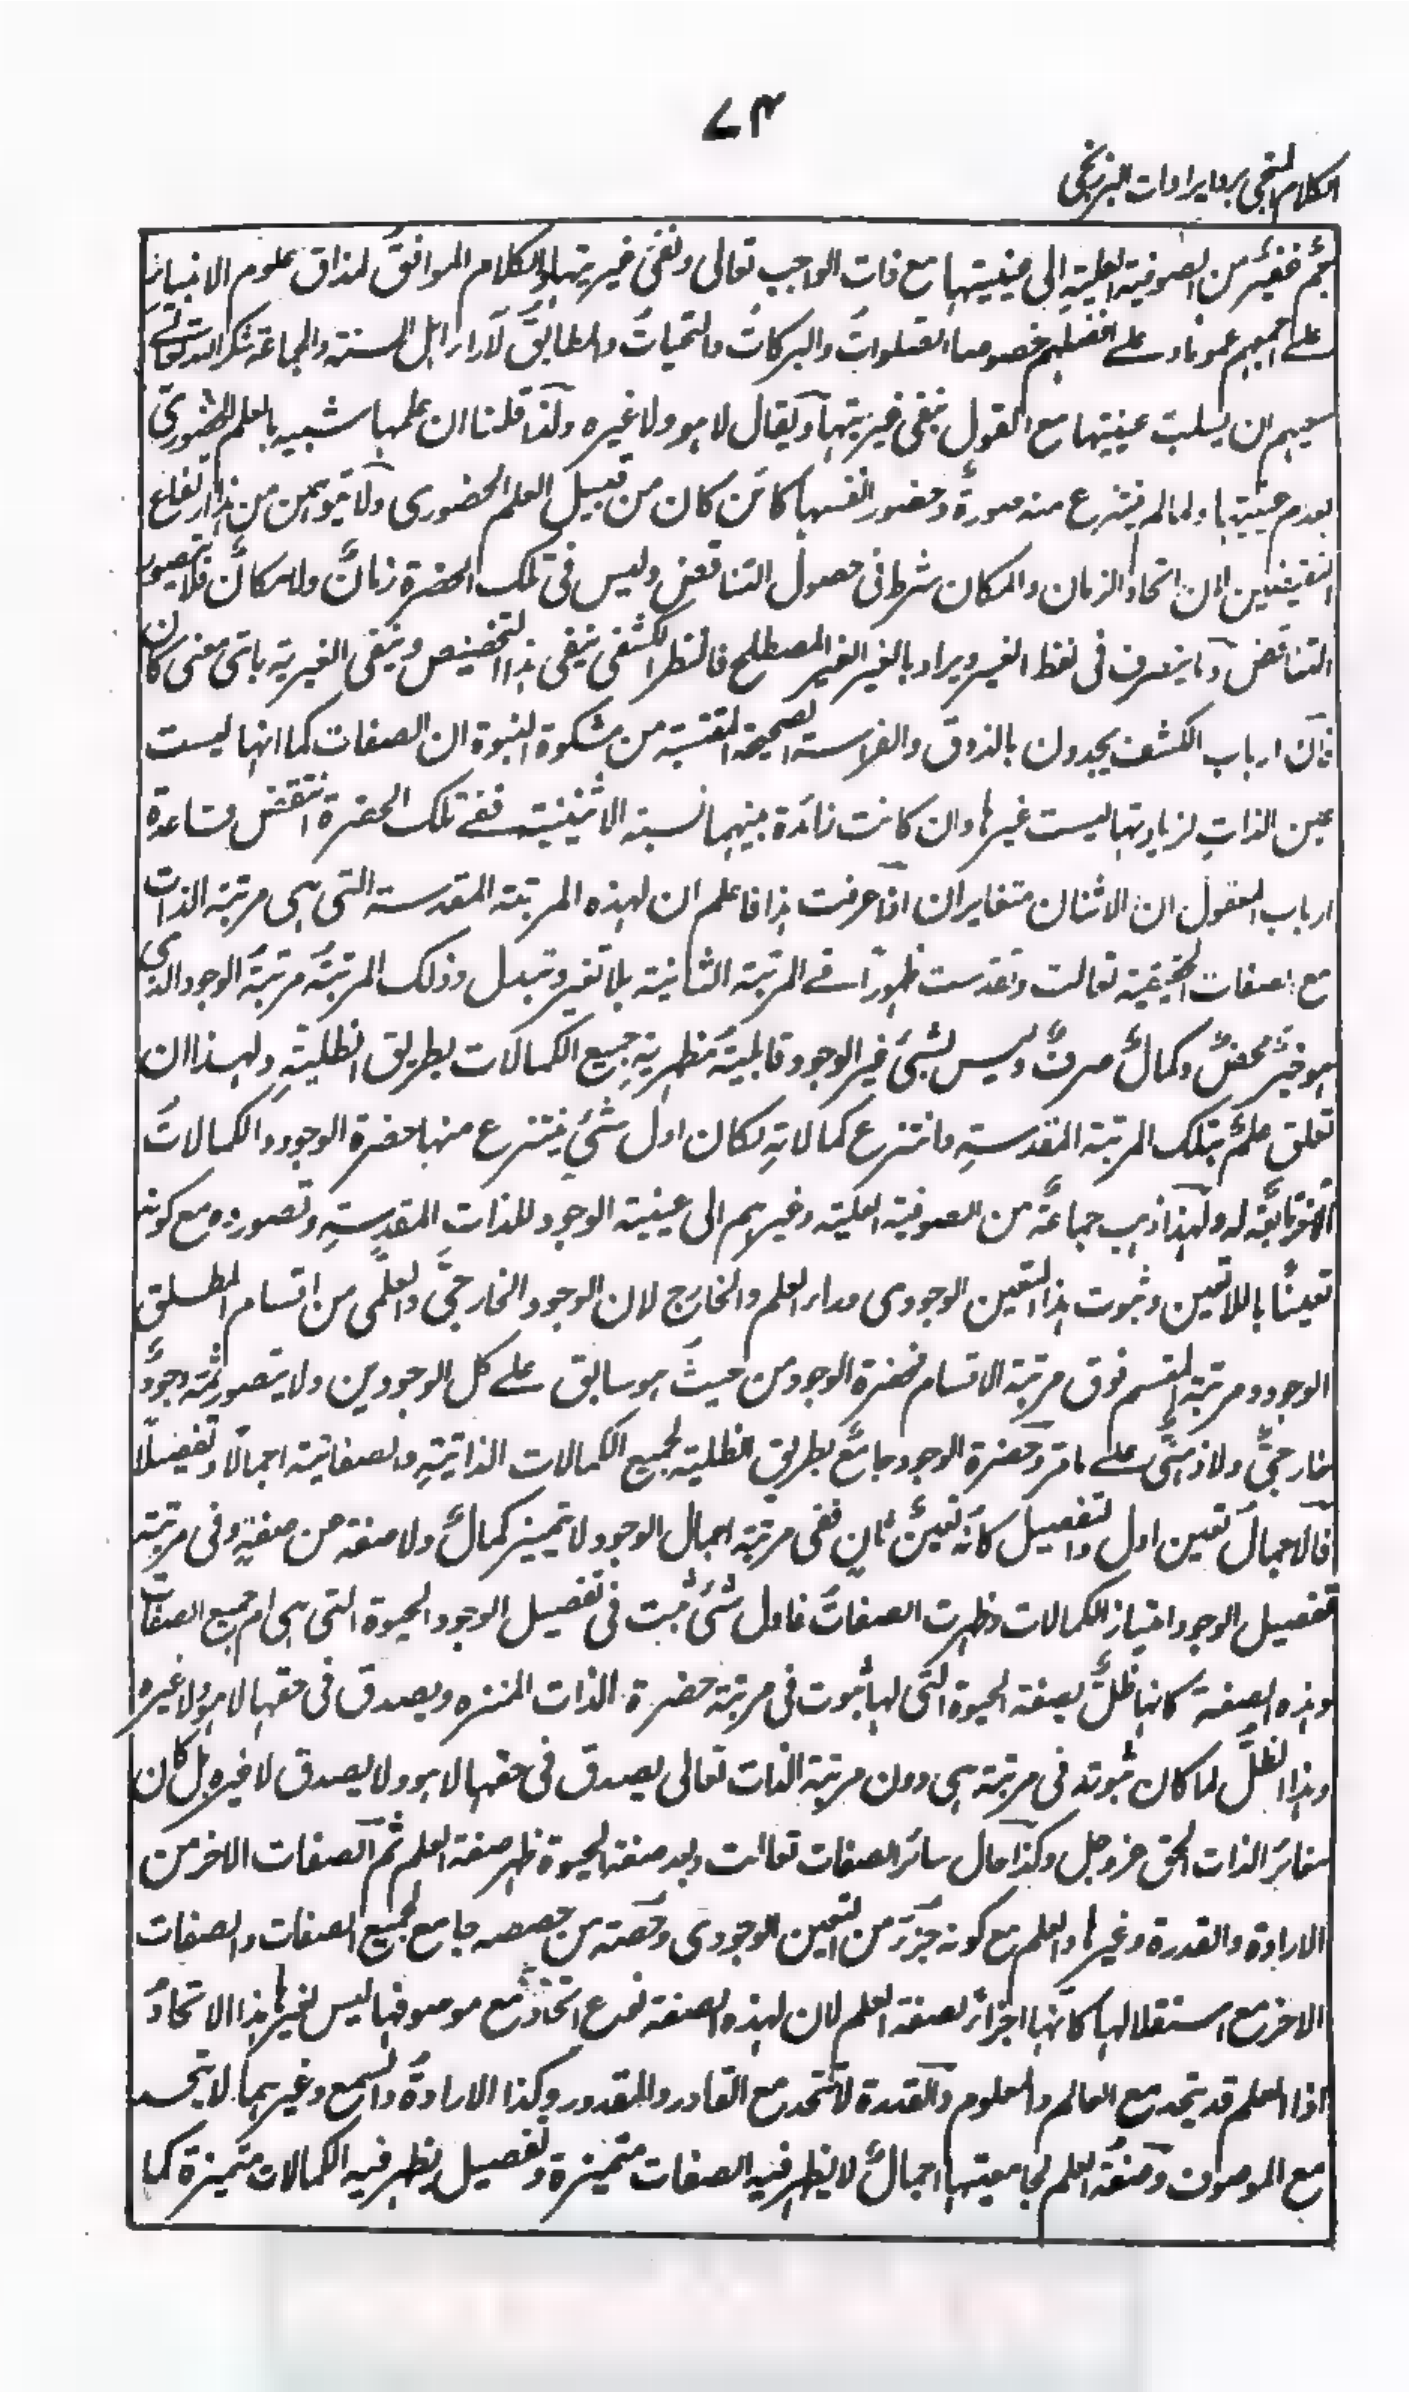 ٧٣
الكلام المنجى برد ايرادات البرزنجى
جم غفير من الصوفية العلية الى عينيتها مع ذات الواجب تعالى ونفى غيريتها والكلام الموافق لمذاق علوم الانبياء
على اجمعهم عموما وعلى افضلهم خصوصا الصلوات والبركات والتحيات والمطابق لآراء اهل السنة والجماعة شكر الله تعالى
سعيهم ان يسلب عينيتها مع القول بنفى غيريتها ويقال لا هو ولا غيره ولذا قلنا ان علمها شبيه بالعلم الحضورى
بعدم عينيتها ولما لم ينتزع منه صورة وحضور انفسها كاف كان من قبيل العلم الحضورى ولا يتوهمن من هذا ارتفاع
النقيضين لان اتحاد الزمان والمكان شرط فى حصول التناقض وليس فى تلك الحضرة زمان ولا مكان فلا يتصور
التناقض وما يتصرف فى لفظ الغير ويراد بالغير الغير المصطلح فالنظر الكشفى ينفى هذا التخصيص وينفى الغيرية باى معنى كان
فان ارباب الكشف يجدون بالذوق والفراسة الصحيحة المقتبسة من مشكوة النبوة ان الصفات كما انها ليست
عين الذات لزيادتها ليست غيرها وان كانت زائدة بينهما نسبة الاثنينية ففى تلك الحضرة انتقض قاعدة
ارباب العقول ان الاثنان متغايران اذا عرفت هذا فاعلم ان لهذه المرتبة المقدسة التى هى مرتبة الذات
مع الصفات الحقيقية تعالت وتقدست ظهورا فى المرتبة الثانية بلا تغير وتبدل وذلك المرتبة مرتبة الوجود الذى
هو خير محض وكمال صرف وليس لشئ غير الوجود قابلية مظهرية جميع الكمالات بطريق الظلية ولهذا ان
تعلق علم بتلك المرتبة المقدسة وانتزع كمالاته لكان اول شئ ينتزع منها حضرة الوجود والكمالات
الاخر تابعة له ولهذا ذهب جماعة من الصوفية العلية وغيرهم الى عينية الوجود للذات المقدسة وتصوروه مع كونه
تعينا باللاتعين وثبوت هذا التعين الوجودى مداء العلم والخارج لان الوجود الخارجى والعلمى من اقسام المطلق
الوجود ومرتبة المقسم فوق مرتبة الاقسام فحضرة الوجود من حيث هو سابق على كل الوجودين ولا يتصور ثمه وجود
خارجى ولا ذهنى على ما قر وحضرة الوجود جامع بطريق الظلية لجميع الكمالات الذاتية والصفاتية اجمالا وتفصيلا
فالاجمال تعين اول والتفصيل كانه تعين ثان ففى مرتبة اجمال الوجود لا يتميز كمال ولا صفة من صفة وفى مرتبة
تفصيل الوجود امتياز الكمالات وظهرت الصفات فاول شئ ثبت فى تفصيل الوجود الحيوة التى هى ام جميع الصفات
وهذه الصفة كانها ظل بصفة الحيوة التى لها ثبوت فى مرتبة حضرة الذات المنزه ويصدق فى حقها لا هو ولا غيره
وهذا الظل لما كان ثبوته فى مرتبة هى دون مرتبة الذات تعالى يصدق فى حقها لا هو ولا يصدق لا غيره بل كان
مغائر الذات الحق عز وجل وكذا حال سائر الصفات تعالت وبعد صفة الحيوة ظهر صفة العلم ثم الصفات الاخر من
الارادة والقدرة وغيرها والعلم مع كونه جزء من التعين الوجودى وحصة من حصصه جامع لجميع الصفات والصفات
الاخر مع استقلالها كانها اجزاء لصفة العلم لان لهذه الصفة نوع اتحاد مع موصوفها ليس لغيرها هذا الاتحاد
اذا العلم قد يتحد مع العالم والمعلوم والقدرة لا تتحد مع القادر والمقدور وكذا الارادة والسمع وغيرهما لا يتحد
مع الموصوف وصفة العلم لجامعيتها اجمال لا يظهر فيه الصفات متميزة وتفصيل يظهر فيه الكمالات متميزة كما